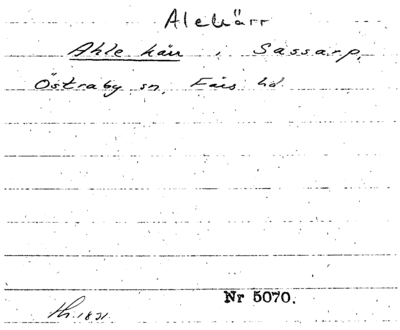 Alekärr
Ahle kärr i Sassarp,
Östraby sn, Färs hd
Nr 5070.
1831.